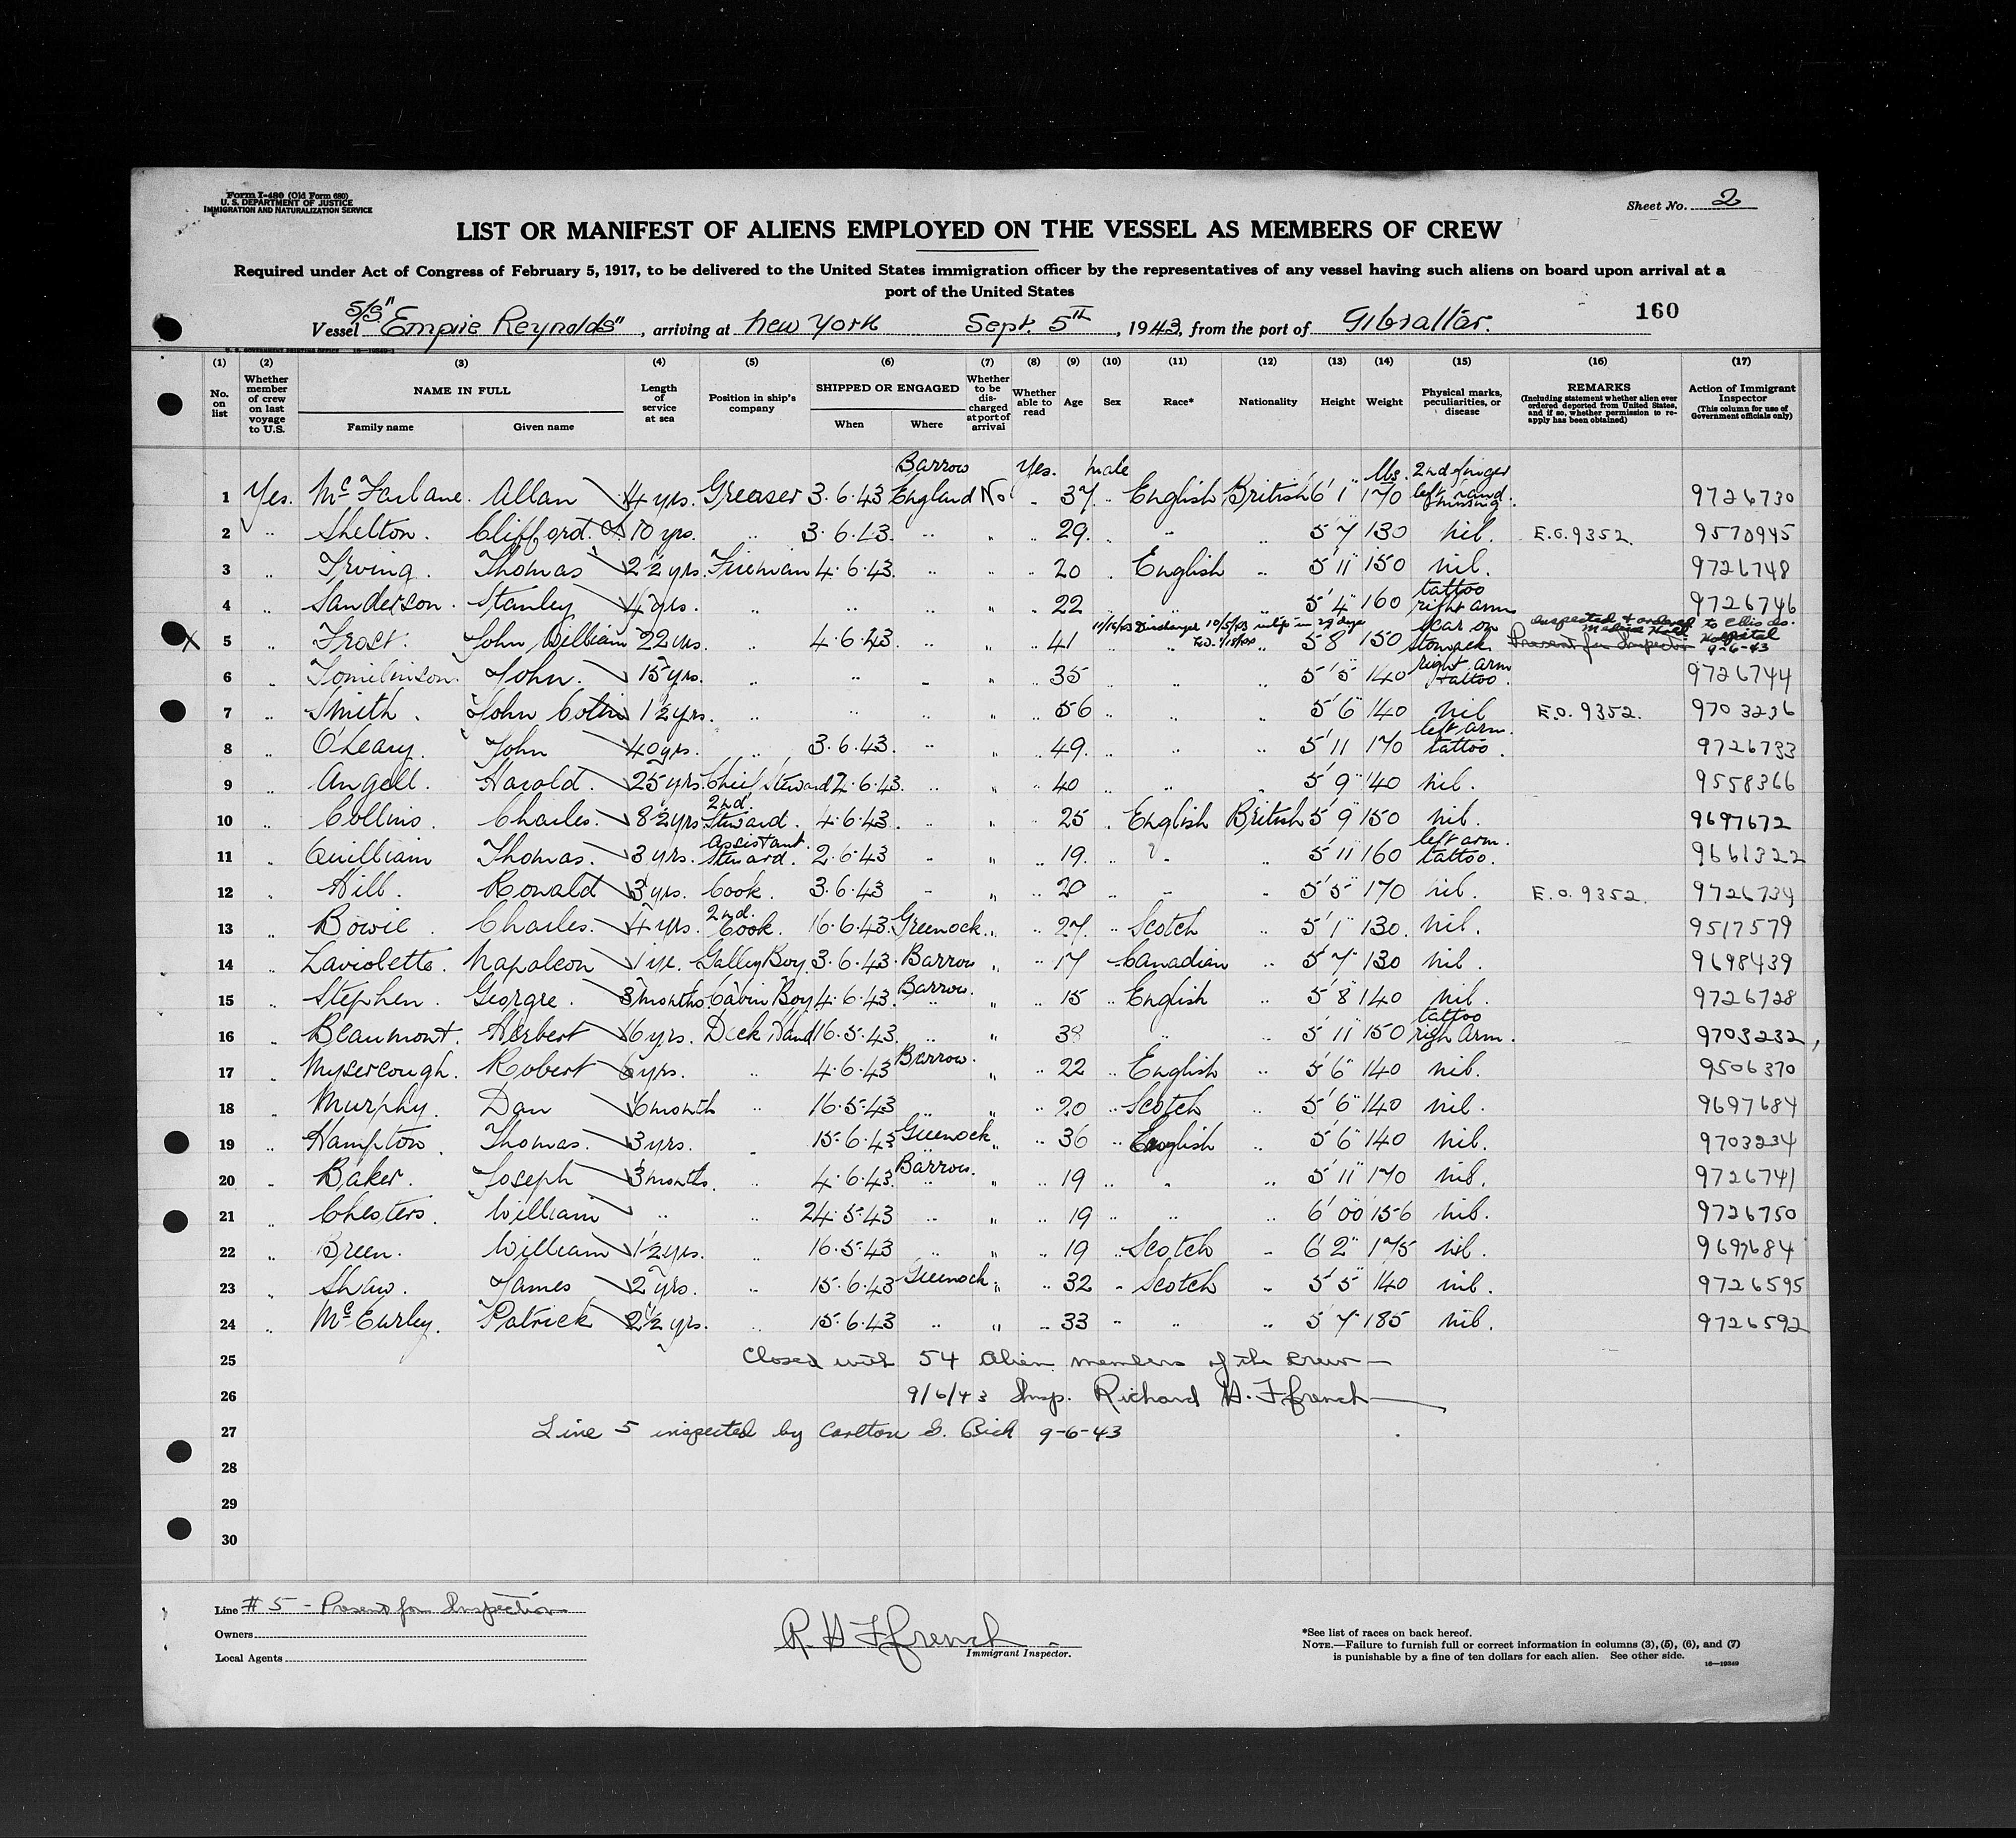 Form I-480 (Old Form 680)
U. S. DEPARTMENT OF JUSTICE
IMMIGRATION AND NATURALIZATION SERVICE
Sheet No. 2
LIST OR MANIFEST OF ALIENS EMPLOYED ON THE VESSEL AS MEMBERS OF CREW
Required under Act of Congress of February 5, 1917, to be delivered to the United States immigration officer by the representatives of any vessel having such aliens on board upon arrival at a
port of the United States
160
Vessel S/S "Empire Reynolds", arriving at New York Sept. 5th, 1943, from the port of Gibraltar.
(1) (2) (3) (4) (5) (6) (7) (8) (9) (10) (11) (12) (13) (14) (15) (16) (17)
No. on list
Whether member of crew on last voyage to U.S.
NAME IN FULL
Family name
Given name
Length of service at sea
Position in ship's company
SHIPPED OR ENGAGED
When
Where
Whether to be discharged at port of arrival
Whether able to read
Age
Sex
Race*
Nationality
Height
Weight
Physical marks, peculiarities, or disease
REMARKS
(Including statement whether alien ever ordered deported from United States, and if so, whether permission to reapply has been obtained)
Action of Immigrant Inspector
(This column for use of Government officials only)
Barrow Yes. Male lbs. 2nd finger
1 Yes. McFarlane. Allan 4 yrs. Greaser 3.6.43 England No " 37 " English British 6' 1" 170 left hand missing. 9726730
2 " Shelton. Clifford. 10 yrs. " 3.6.43. " " " 29. " " " 5 7 130 nil. E.O. 9352. 9570945
3 " Irving. Thomas 2½ yrs. Fireman 4.6.43. " " " 20 " English " 5' 11" 150 nil. 9726748
4 " Sanderson. Stanley 4 yrs. " " " " " 22 " " " 5' 4" 160 tattoo right arm 9726746
11/16/43 Discharged 10/5/43 in 29 days
Inspected & ordered to Ellis Is. Medical Hold Hospital 9-6-43
X 5 " Frost. John William 22 yrs. " 4.6.43 " " " 41 " " " 5 8 150 scar on stomach Present for Inspection
6 " Tomlinson. John. 15 yrs. " " " " " 35 " " " 5' 5" 140 right arm tattoo. 9726744
7 " Smith. John Colin 1½ yrs. " " " " " 56 " " " 5' 6" 140 nil E.O. 9352. 9703236
8 " O'Leary. John 40 yrs. " 3.6.43. " " " 49. " " " 5' 11 170 left arm. tattoo. 9726733
9 " Angell. Harold. 25 yrs. Chief Steward 2.6.43. " " " 40 " " " 5' 9" 140 nil. 9558366
10 " Collins. Charles. 8½ yrs 2nd. Steward. 4.6.43. " " " 25 " English British 5' 9" 150 nil. 9697672
11 " Quilliam Thomas. 3 yrs. Assistant. Steward. 2.6.43 " " " 19. " " " 5' 11" 160 left arm. tattoo. 9661322
12 " Hill. Ronald 3 yrs. Cook. 3.6.43 " " " 20 " " " 5' 5" 170 nil. E.O. 9352. 9726734
13 " Bowie. Charles. 4 yrs. 2nd. Cook. 16.6.43. Greenock. " " 27. " Scotch " 5' 1" 130. nil. 9517579
14 " Laviolette. Napoleon 1 yr. Galley Boy. 3.6.43. Barrow " " 17 " Canadian " 5' 7" 130 nil. 9698439
15 " Stephen. George. 3 months. Cabin Boy 4.6.43. Barrow. " " 15 " English " 5' 8" 140 nil. 9726728
16 " Beaumont. Herbert 6 yrs. Deck Hand 16.5.43. " " " 38 " " " 5' 11" 150 tattoo righ Arm. 9703232,
17 " Mysercough. Robert 6 yrs. " 4.6.43 Barrow. " " 22 " English " 5' 6" 140 nil. 9506370
18 " Murphy. Dan 6 month " 16.5.43 " " " 20 " Scotch " 5' 6" 140 nil. 9697684
19 " Hampton. Thomas. 3 yrs. " 15.6.43 Greenock " " 36 " English " 5' 6" 140 nil. 9703234
20 " Baker. Joseph 3 months. " 4.6.43. Barrow. " " 19 " " " 5' 11" 170 nil. 9726741
21 " Chesters. William " " 24.5.43 " " " 19 " " " 6' 00 156 nil. 9726750
22 " Breen. William 1½ yrs. " 16.5.43 " " " 19 " Scotch " 6' 2" 175 nil. 9697684
23 " Shaw. James 2 yrs. " 15.6.43 Greenock. " " 32 " Scotch " 5' 5" 140 nil. 9726595
24 " McCurley. Patrick 2½ yrs. " 15.6.43 " " " 33 " " " 5' 7" 185 nil. 9726592
25 Closed with 54 Alien members of the crew—
26 9/6/43 Insp. Richard H. Ffrench
27 Line 5 inspected by Carlton G. Rich 9-6-43
28
29
30
Line # 5 - Present for Inspection
Owners
Local Agents
R. H Ffrench
Immigrant Inspector.
*See list of races on back hereof.
NOTE.—Failure to furnish full or correct information in columns (3), (5), (6), and (7)
is punishable by a fine of ten dollars for each alien. See other side.
16—19349